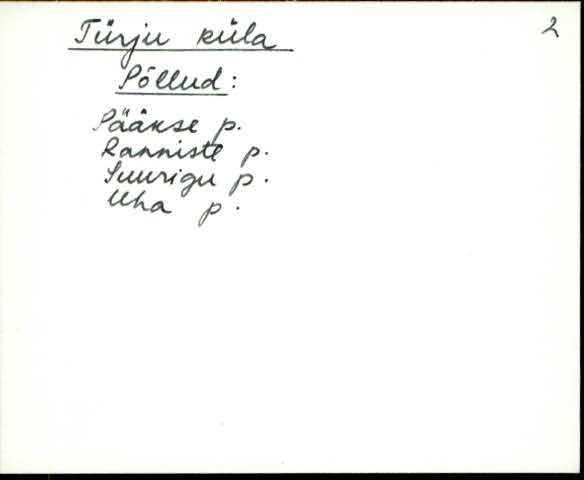 Türju küla 2
Põllud:
Pääkse p.
Ranniste p.
Suurigu p.
Uha p.